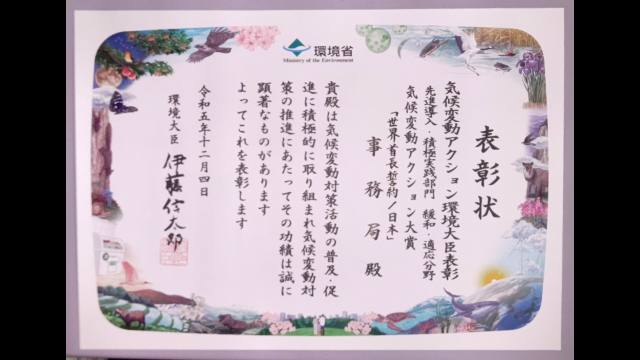 環境省
Ministry of the Environment
表彰状
気候変動アクション環境大臣表彰
先進導入・積極実践部門 緩和・適応分野
気候変動アクション大賞
「世界首長誓約/日本」
事務局 殿
貴殿は気候変動対策活動の普及・促
進に積極的に取り組まれ気候変動対
策の推進にあたってその功績は誠に
顕著なものがあります
よってこれを表彰します
令和五年十二月四日
環境大臣 伊藤信太郎